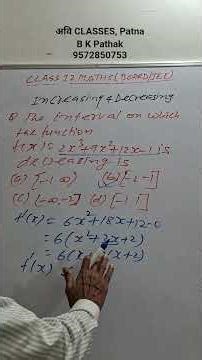 अवि CLASSES, Patna
B K Pathak
9572850753
CLASS 12 MATHS (BOARD/JEE)
Increasing & Decreasing
Q The interval on which
the function
f(x) = 2x³+9x²+12x-1 is
decreasing is
(a) [-1 ∞) (b) [-2 -1]
(c) (-∞,-2] (d) [-1 1]
f'(x) = 6x²+18x+12-0
= 6(x²+3x+2)
= 6(x x+2)
f'(x)